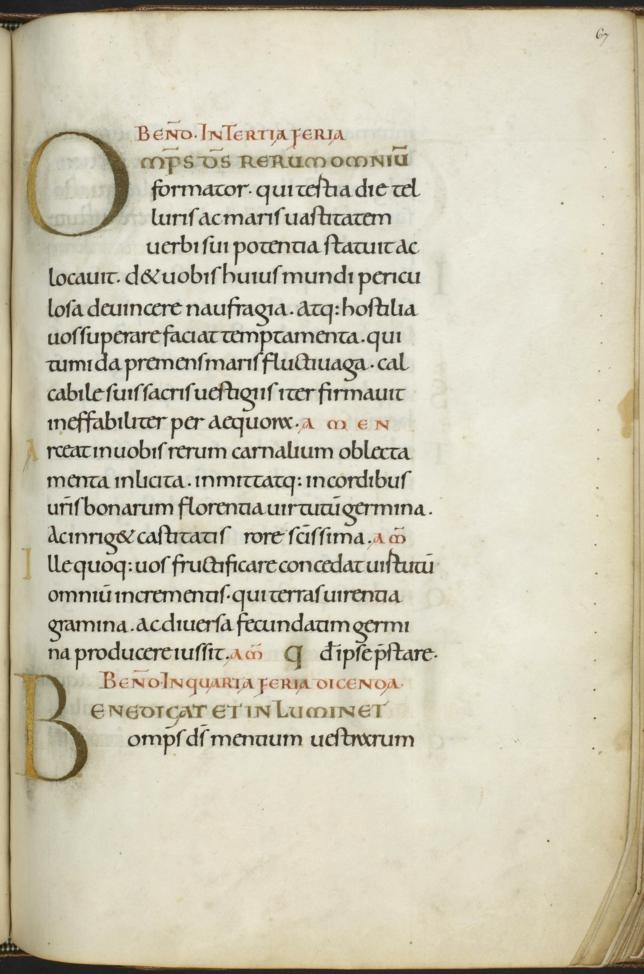 67
BEÑD. IN TERTIA FERIA
OMP̅S D̅S RERUM OMNIU̅
formator. qui testia die tel
luris ac maris uastitatem
uerbi sui potentia statuit ac
locauit. d& uobis huius mundi pericu
losa deuincere naufragia. Atq: hostilia
uos superare faciat temptamenta. qui
tumida premens maris fluctiuaga. cal
cabile suis sacris uestigiis iter firmauit
ineffabiliter per aequora. A M E N
Arceat in uobis rerum carnalium oblecta
menta inlicita. inmittatq: in cordibus
ur̅is bonarum florentia uirtutu̅ germina.
Ac inrig& castitatis rore sc̅issima. AM̅
Ille quoq: uos fructificare concedat uirtutu̅
omniu̅ incrementis. qui terras uirentia
gramina. ac diuersa fecundatim germi
na producere iussit. AM̅ Q d̅ ipse p̅stare.
BEÑD. IN QUARTA FERIA DICENDA.
BENEDICAT ET INLUMINET
omp̅s d̅s mentium uestrarum